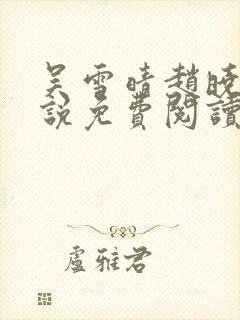 吴雪晴趙曉
說免費閱讀
盧雅君